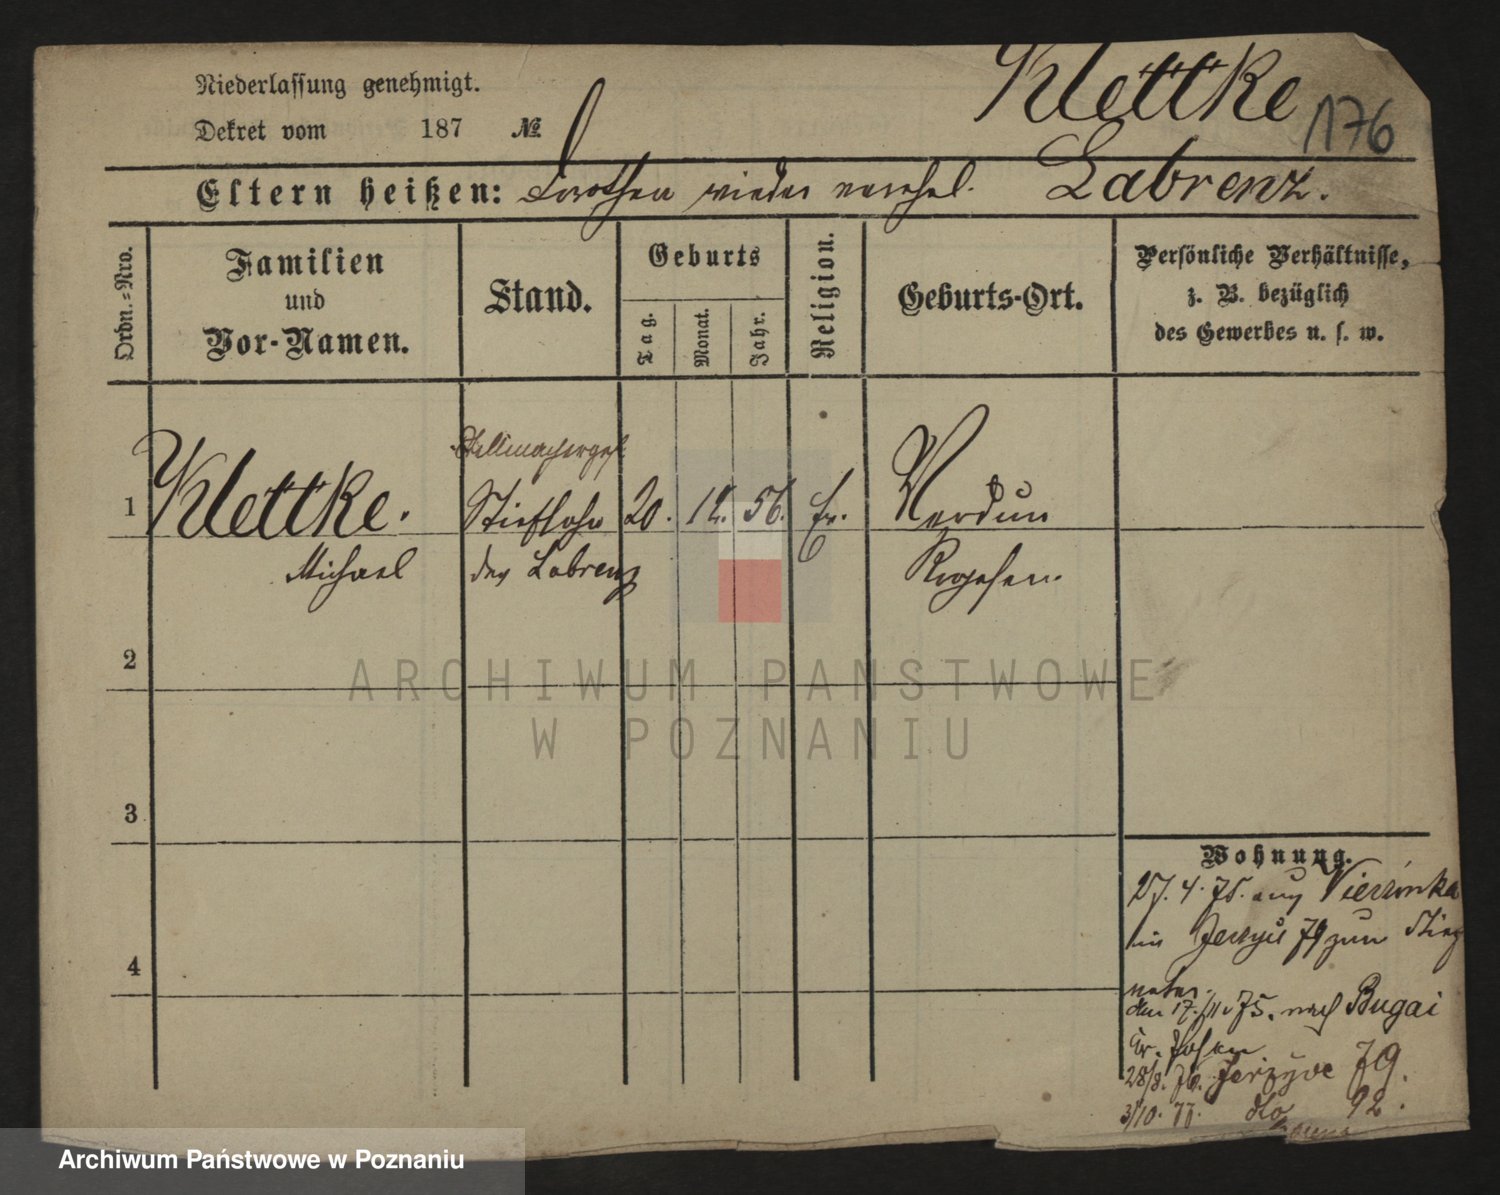 Klettke
176
Niederlassung genehmigt.
Dekret vom 187 №
Eltern heißen: Dorothea wieder verehel. Labrenz.
Ordn.=Nro.
Familien
und
Vor-Namen.
Stand.
Geburts
Tag.
Monat.
Jahr.
Religion.
Geburts-Ort.
Persönliche Verhältnisse,
z. B. bezüglich
des Gewerbes u. s. w.
Stellmacherges.
1 Klettke. Stiefsohn 20. 12. 56. ev. Verdun
Michael des Labrenz Rogasen.
2
3
4
Wohnung.
27. 4. 75. aus Vierzonka
in Jerzyce 79 zum Stief
vater.
den 17./11. 75. nach Bugai
Kr. Posen
28/8. 76. Jerzyce 79.
3/10. 77. dto 92.
ARCHIWUM PAŃSTWOWE
W POZNANIU
Archiwum Państwowe w Poznaniu